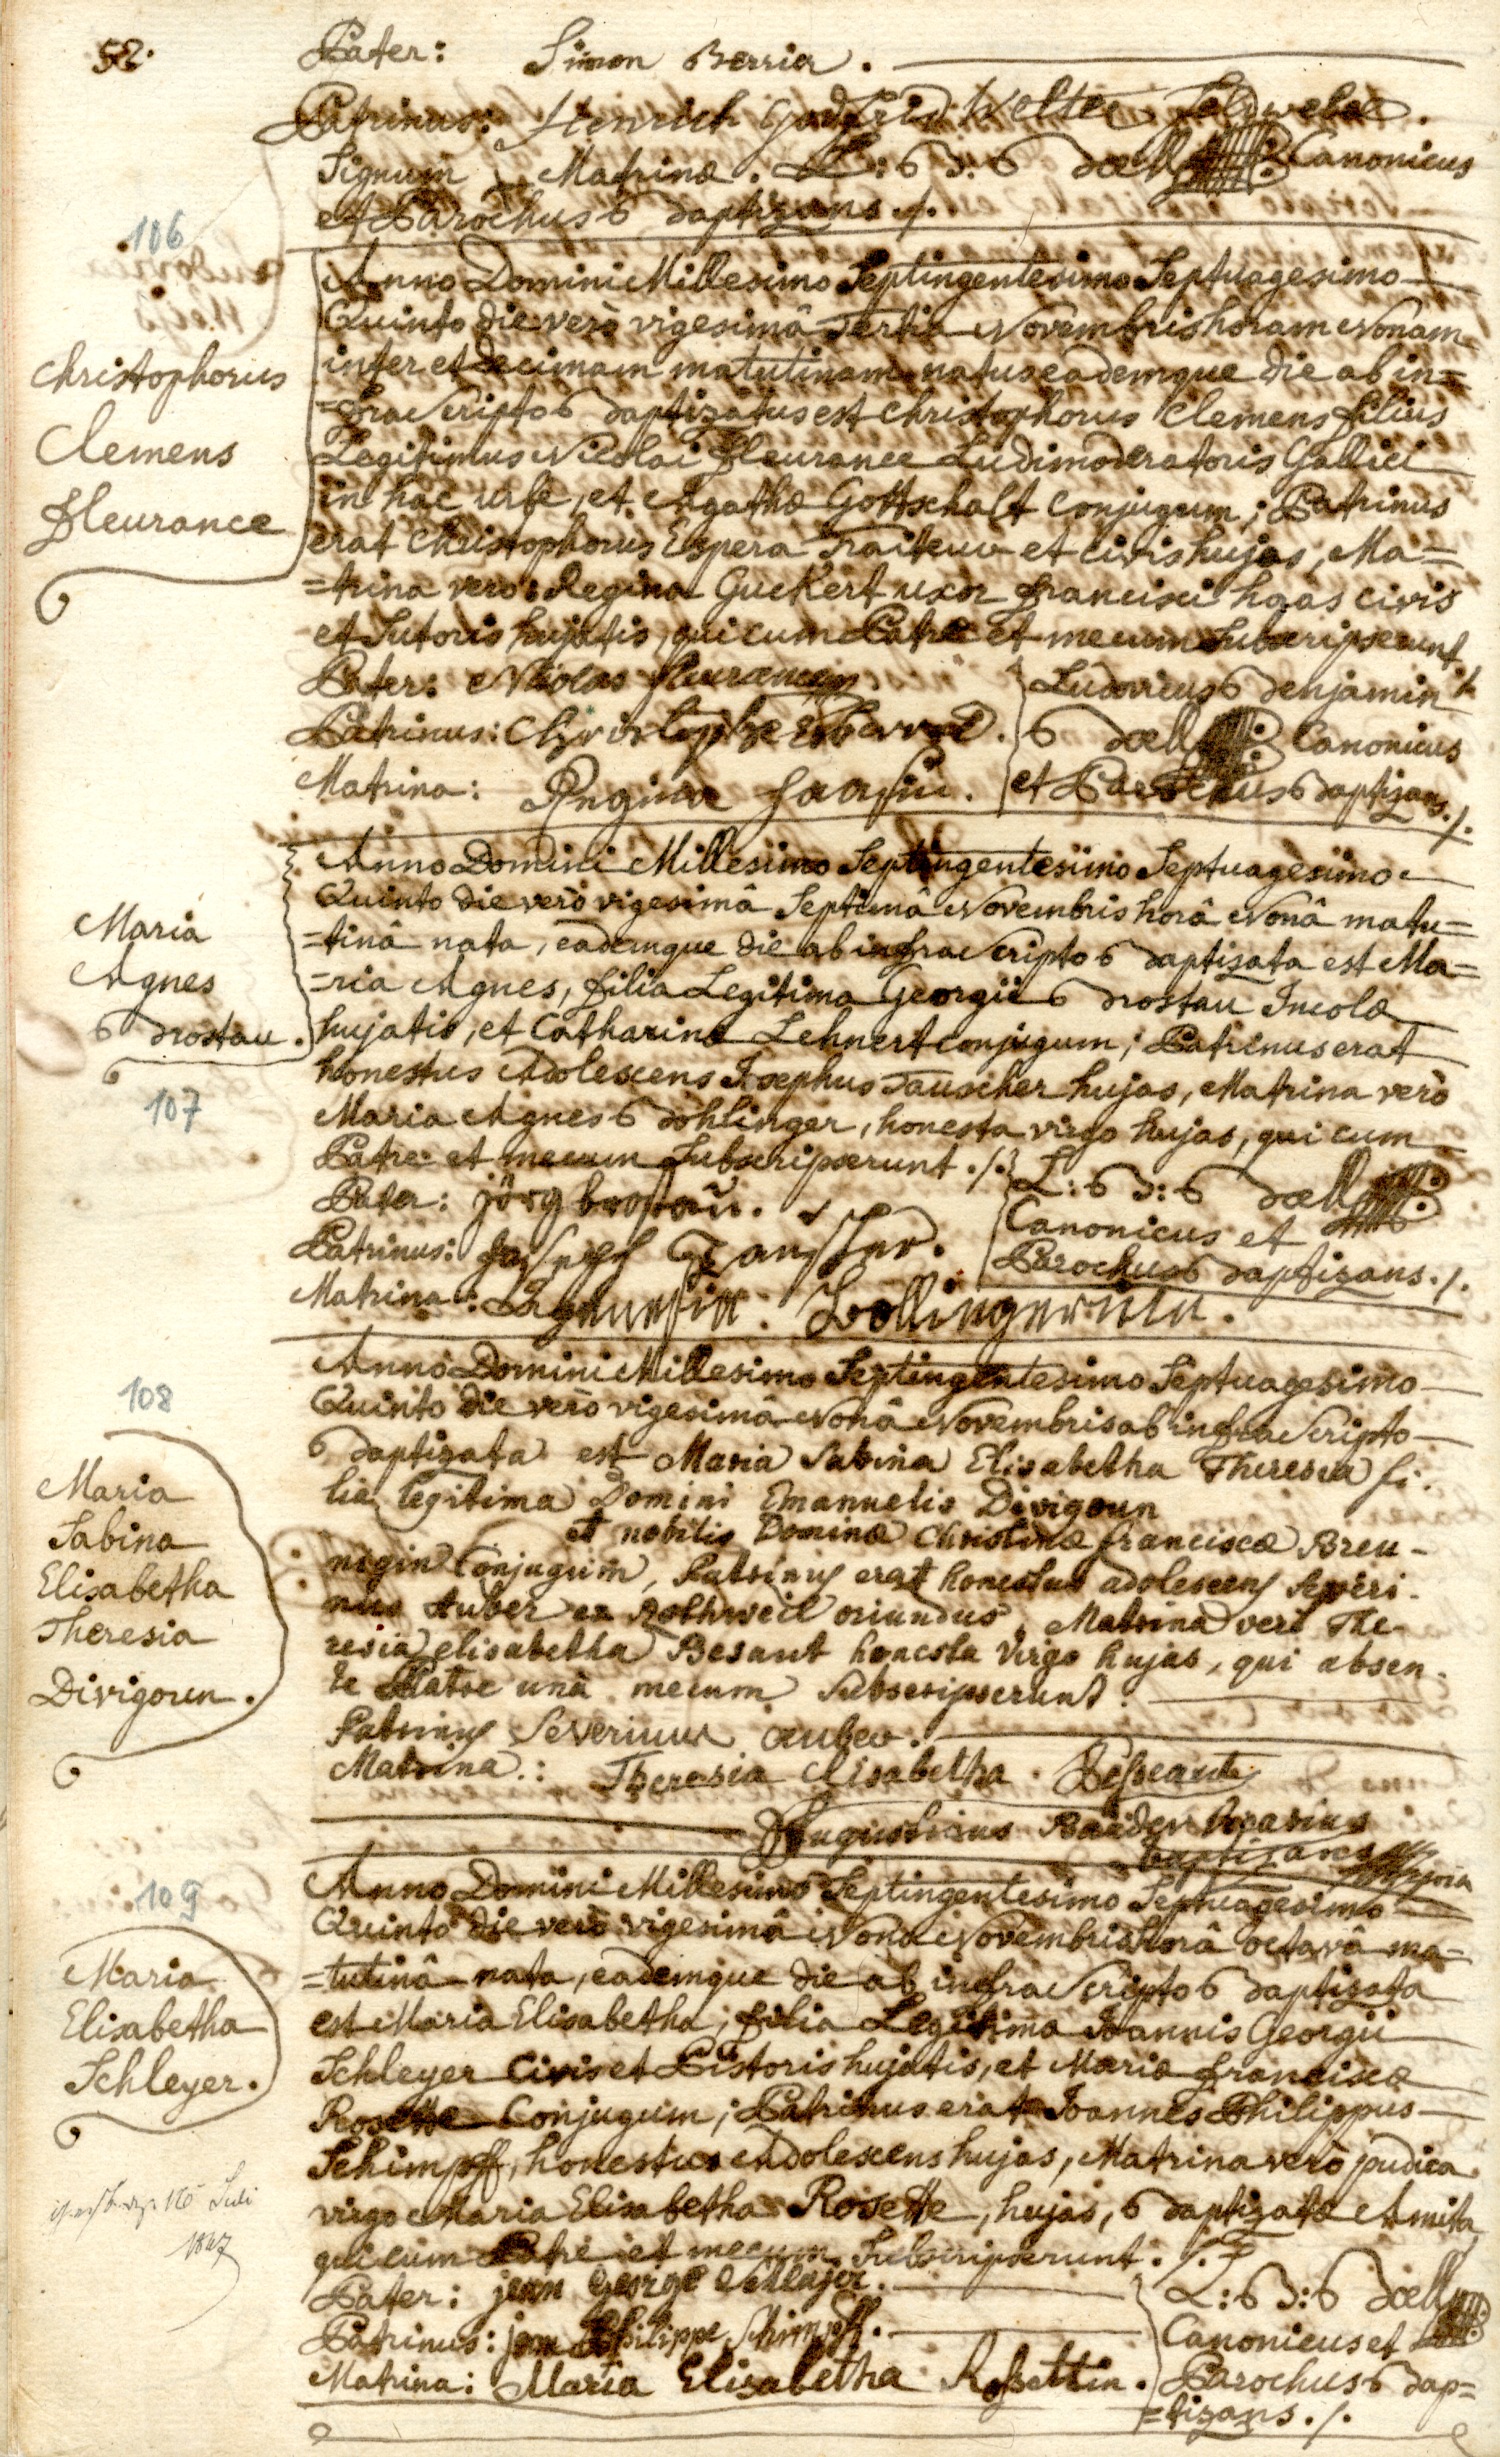 52.
Pater: Simon Berrier.
Patrinus: Henrich Welter
Signum Matrinæ. L: B: Boell Canonicus
et Parochus Baptizans ./.
106
Christophorus
Clemens
Fleurance
Anno Domini Millesimo Septingentesimo Septuagesimo
Quinto die verò vigesimâ Tertia Novembris horam Nonam
inter et decimam matutinam natus eademque die ab in=
=frascripto Baptizatus est Christophorus Clemens filius
Legitimus Nicolai Fleurance Ludimoderatoris Gallici
in hac urbe, et Agathæ Gottschalt conjugum; Patrinus
erat Christophorus Espera Traiteur et civis hujas, Ma=
=trina verò Regina Guckert uxor Francisci haas civis
et Sutoris hujatis, qui cum Patre et mecum Subscripserunt ./.
Pater: Nicolas fleurance
Patrinus: Christophe
Matrina: Regina haasin.
Ludovicus Benjamin
Boell Canonicus
et Parochus Baptizans ./.
Maria
Agnes
Brostau.
107
Anno Domini Millesimo Septingentesimo Septuagesimo
Quinto die verò vigesimâ Septimâ Novembris horâ Nonâ matu=
=tinâ nata, eademque die ab infrascripto Baptizata est Ma=
=ria Agnes, filia Legitima Georgii Brostau Incolæ
hujatis, et Catharinæ Lehnert conjugum; Patrinus erat
honestus Adolescens Josephus Tauscher hujas, Matrina verò
Maria Agnes Bohlinger, honesta virgo hujas, qui cum
Patre et mecum Subscripserunt ./.
Pater: jörg brostau.
Patrinus: Joseph Tauscher.
Matrina: Bollingerin.
L: B: Boell
Canonicus et
Parochus Baptizans ./.
108
Maria
Sabina
Elisabetha
Theresia
Divigoun.
Anno Domini Millesimo Septingentesimo Septuagesimo
Quinto die verò vigesimâ Nonâ Novembris ab infrascripto
Baptizata est Maria Sabina Elisabetha Theresia fi.
lia legitima Domini Emanuelis Divigoun
et nobilis Dominæ Christinæ franciscæ Breu-
nigin Conjugum, Patrinus erat honestus adolescens Severi.
nus Auber ex Rothweil oriundus, Matrina verò The-
resia elisabetha Besant honesta Virgo hujas, qui absen-
te Patre unà mecum subscripserunt.
Patrinus Severinus auber.
Matrina: Theresia Elisabetha Besseant
Augustinus Baader Vicarius
baptizans
109
Maria
Elisabetha
Schleyer.
Juli
Anno Domini Millesimo Septingentesimo Septuagesimo
Quinto die verò vigesimâ Nona Novembris horâ octavâ ma=
=tutinâ nata, eademque die ab infrascripto Baptizata
est Maria Elisabetha, filia Legitima Joannis Georgii
Schleyer Civis et Pistoris hujatis, et Mariæ Franciscæ
Rosette Conjugum; Patrinus erat Joannes Philippus
Schimpff, honestus Adolescens hujas, Matrina verò pudica
virgo Maria Elisabetha Rosette, hujas, Baptizatæ Amita,
qui cum Patre et mecum Subscripserunt ./.
Pater: jean George
Patrinus: jean Philippe Schimpff.
Matrina: Maria Elisabetha Roßettin.
L: B: Boell
Canonicus et
Parochus Bap=
=tizans ./.